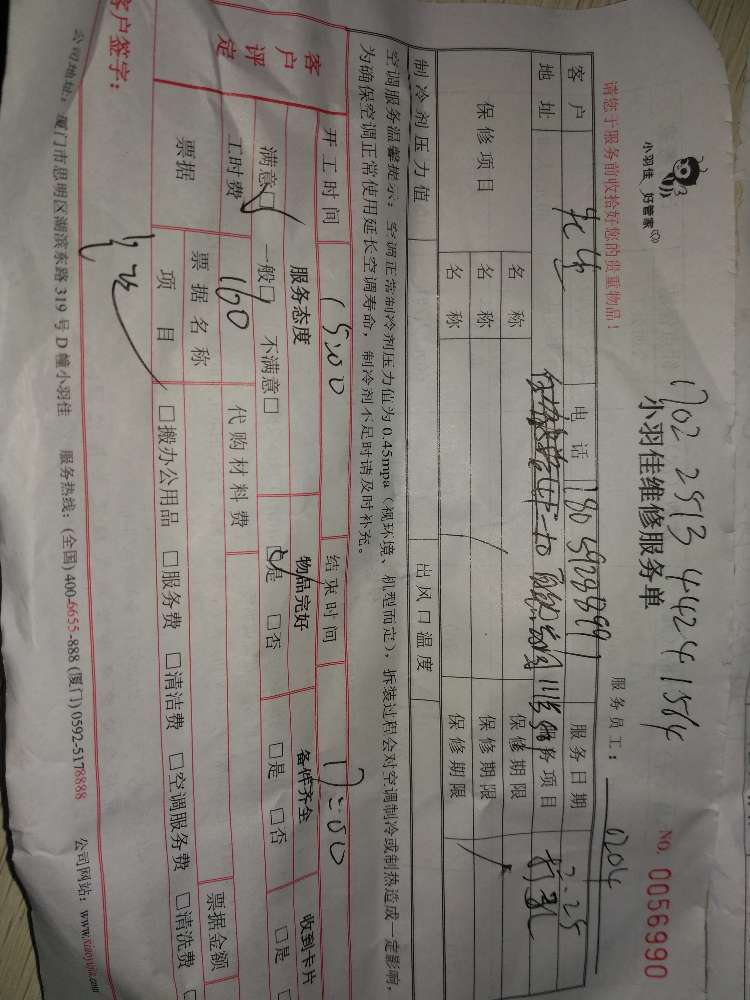 小羽佳 好管家
1702 2513 4424 1564
小羽佳维修服务单
NO. 0056990
请您于服务前收拾好您的贵重物品！
服务员工： 0204
客户 电话 服务日期 2.25
地址 服务项目 打孔
保修项目 名称 保修期限
名称 保修期限
名称 保修期限
制冷剂压力值 出风口温度
空调服务温馨提示：空调正常制冷剂压力值为0.45mpa（视环境、机型而定），拆装过程会对空调制冷或制热造成一定影响，
为确保空调正常使用延长空调寿命，制冷剂不足时请及时补充。
开工时间 15:00 结束时间 17:00
客户评定 服务态度 物品完好 备件齐全 收到卡片
满意□ 一般□ 不满意□ □是 □否 □是 □否 □是
工时费 160 代购材料费
票据 票据名称 票据金额
项目 □搬办公用品 □服务费 □清洁费 □空调服务费 □清洗费
客户签字：
公司地址：厦门市思明区湖滨东路319号D幢小羽佳 服务热线：(全国) 400-6655-888 (厦门) 0592-5178888 公司网站：www.xiaoyujia.com